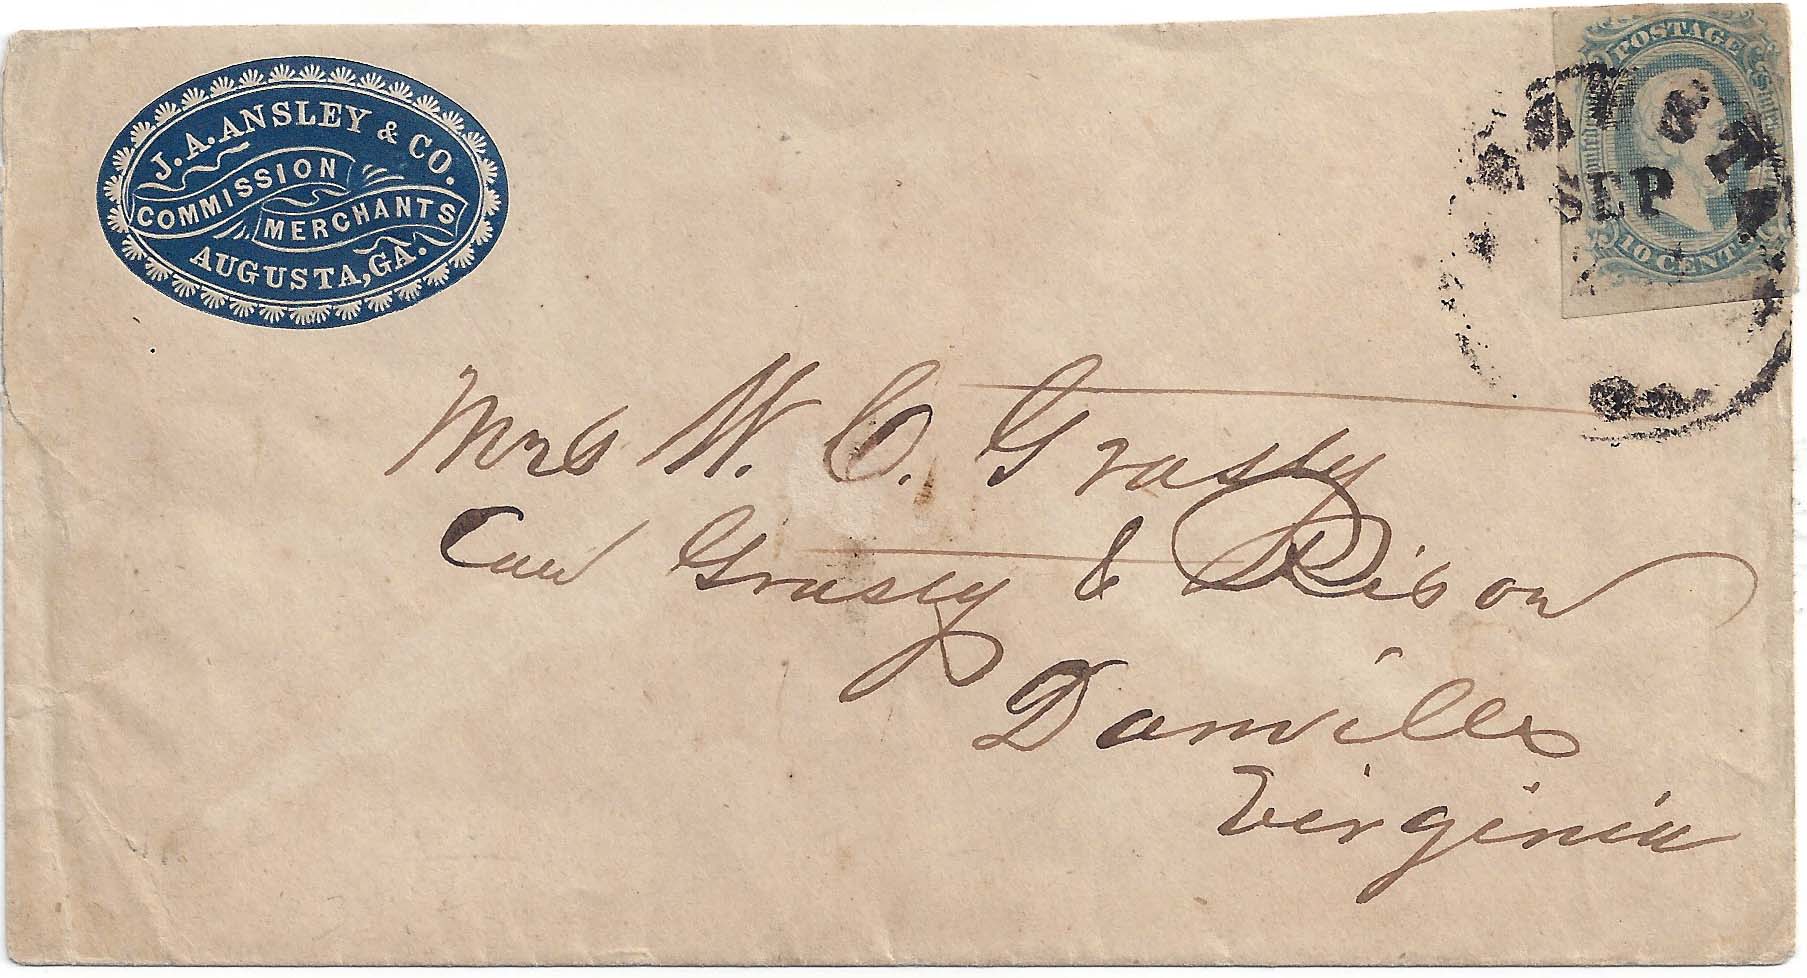 J. A. ANSLEY & CO.
COMMISSION
MERCHANTS
AUGUSTA, GA.
POSTAGE
10 CENTS
AUGUSTA
SEP
Mrs W. C. Grasty
Care Grasty & Rison
Danville
Virginia